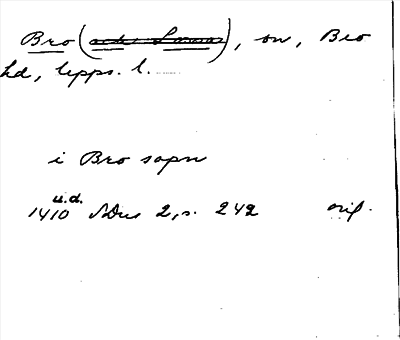 Bro (), sn, Bro
hd, Upps. l.
i Bro sopn
u.d.
1410 SDns 2, s. 242 orig.